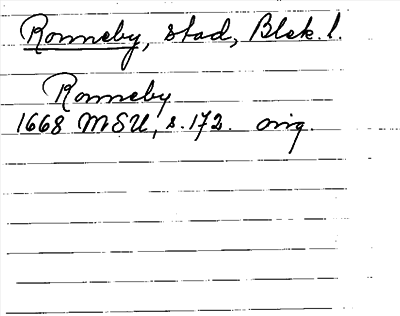 Ronneby, stad, Blek. l.
Ronneby
1668 MSU, s. 172. orig.